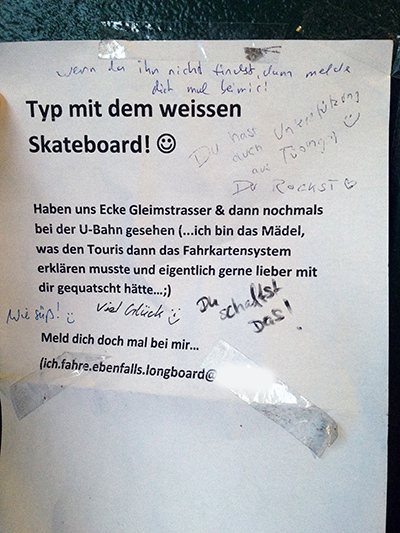 wenn du ihn nicht findest, dann melde
dich mal bei mir!
Typ mit dem weissen
Skateboard! ☺
Du hass Unterstützung
auch
aus Türingn ☺
Du Rockst ♡
Haben uns Ecke Gleimstrasser & dann nochmals
bei der U-Bahn gesehen (...ich bin das Mädel,
was den Touris dann das Fahrkartensystem
erklären musste und eigentlich gerne lieber mit
dir gequatscht hätte...;)
Wie süß! :)
Viel Glück :)
Du schaffst
Das!
Meld dich doch mal bei mir...
(ich.fahre.ebenfalls.longboard@